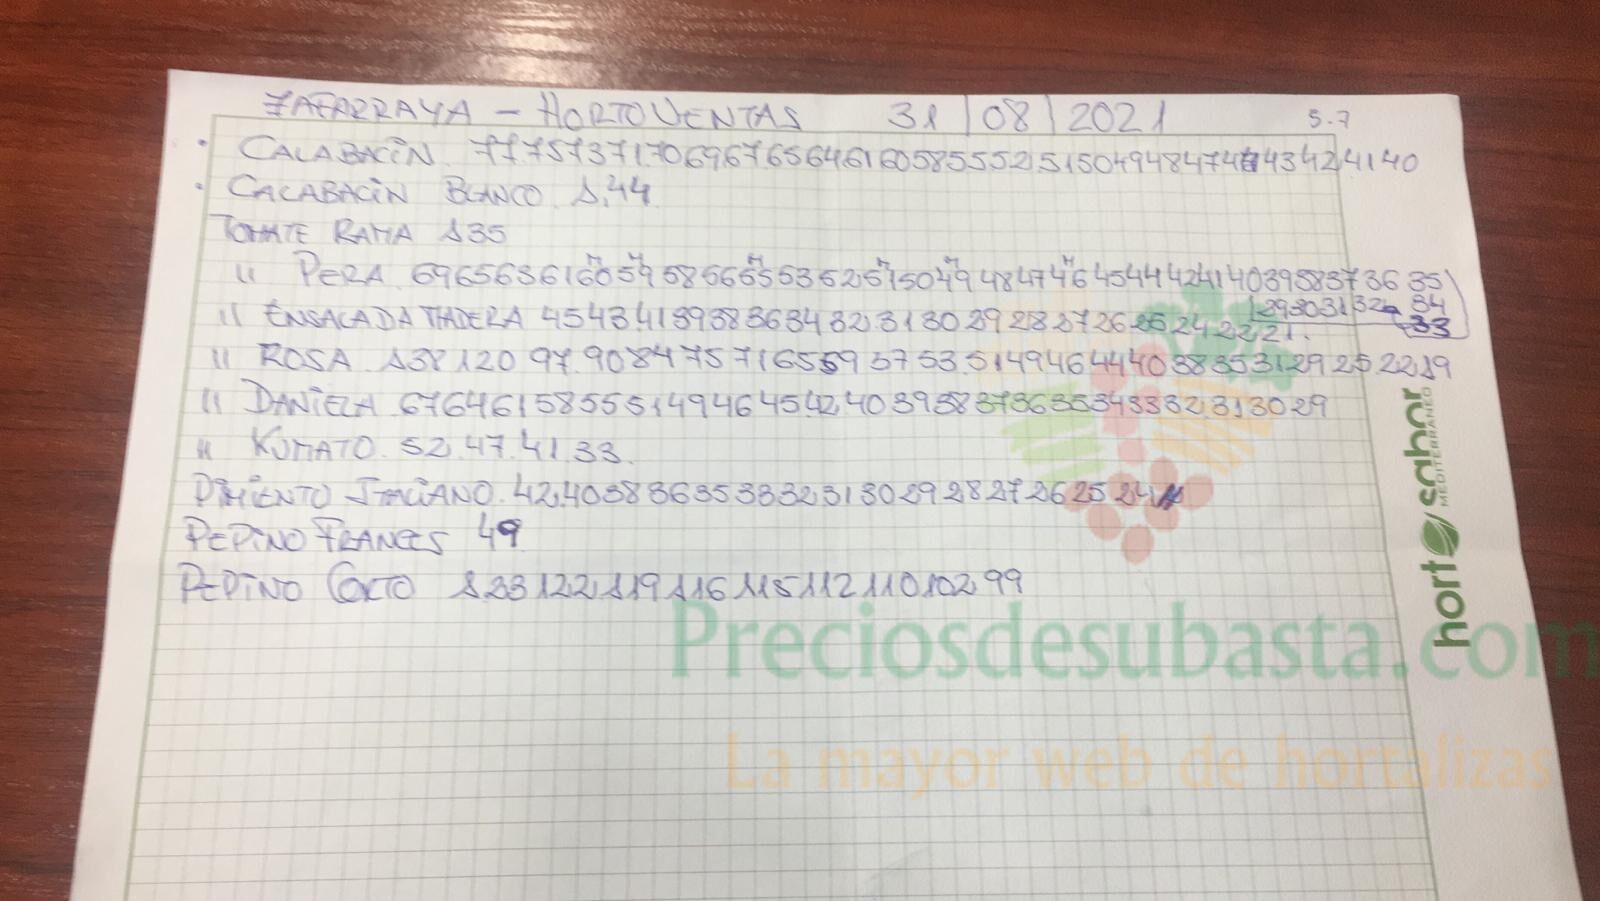 ZAFARRAYA - HORTOVENTAS 31/08/2021 5-7
· CALABACIN. 77 75 73 71 70 69 67 65 64 61 60 58 55 52 51 50 49 48 47 43 42 41 40
· CALABACIN BLANCO 1,44
TOMATE RAMA 135
" PERA 69 65 63 61 60 59 58 56 55 53 52 51 50 49 48 47 46 45 44 42 41 40 39 38 37 36 35
29 30 31 32 34
" ENSALADA MADERA 45 43 41 39 38 36 34 32 31 30 29 28 27 26 25 24 22 21. 33
" ROSA 138 120 97. 90 84 75 71 65 59 57 53 51 49 46 44 40 38 35 31 29 25 22 19
" DANIELA 67 64 61 58 55 51 49 46 45 42 40 39 38 37 36 35 34 33 32 31 30 29
" KUMATO. 52. 47. 41. 33.
PIMIENTO ITALIANO. 42. 40 38 36 35 33 32 31 30 29 28 27 26 25 24
PEPINO FRANCES 49
PEPINO CORTO 133 122 119 116 115 112 110 102 99
hortosabor
MEDITERRÁNEO
Preciosdesubasta.com
La mayor web de hortalizas